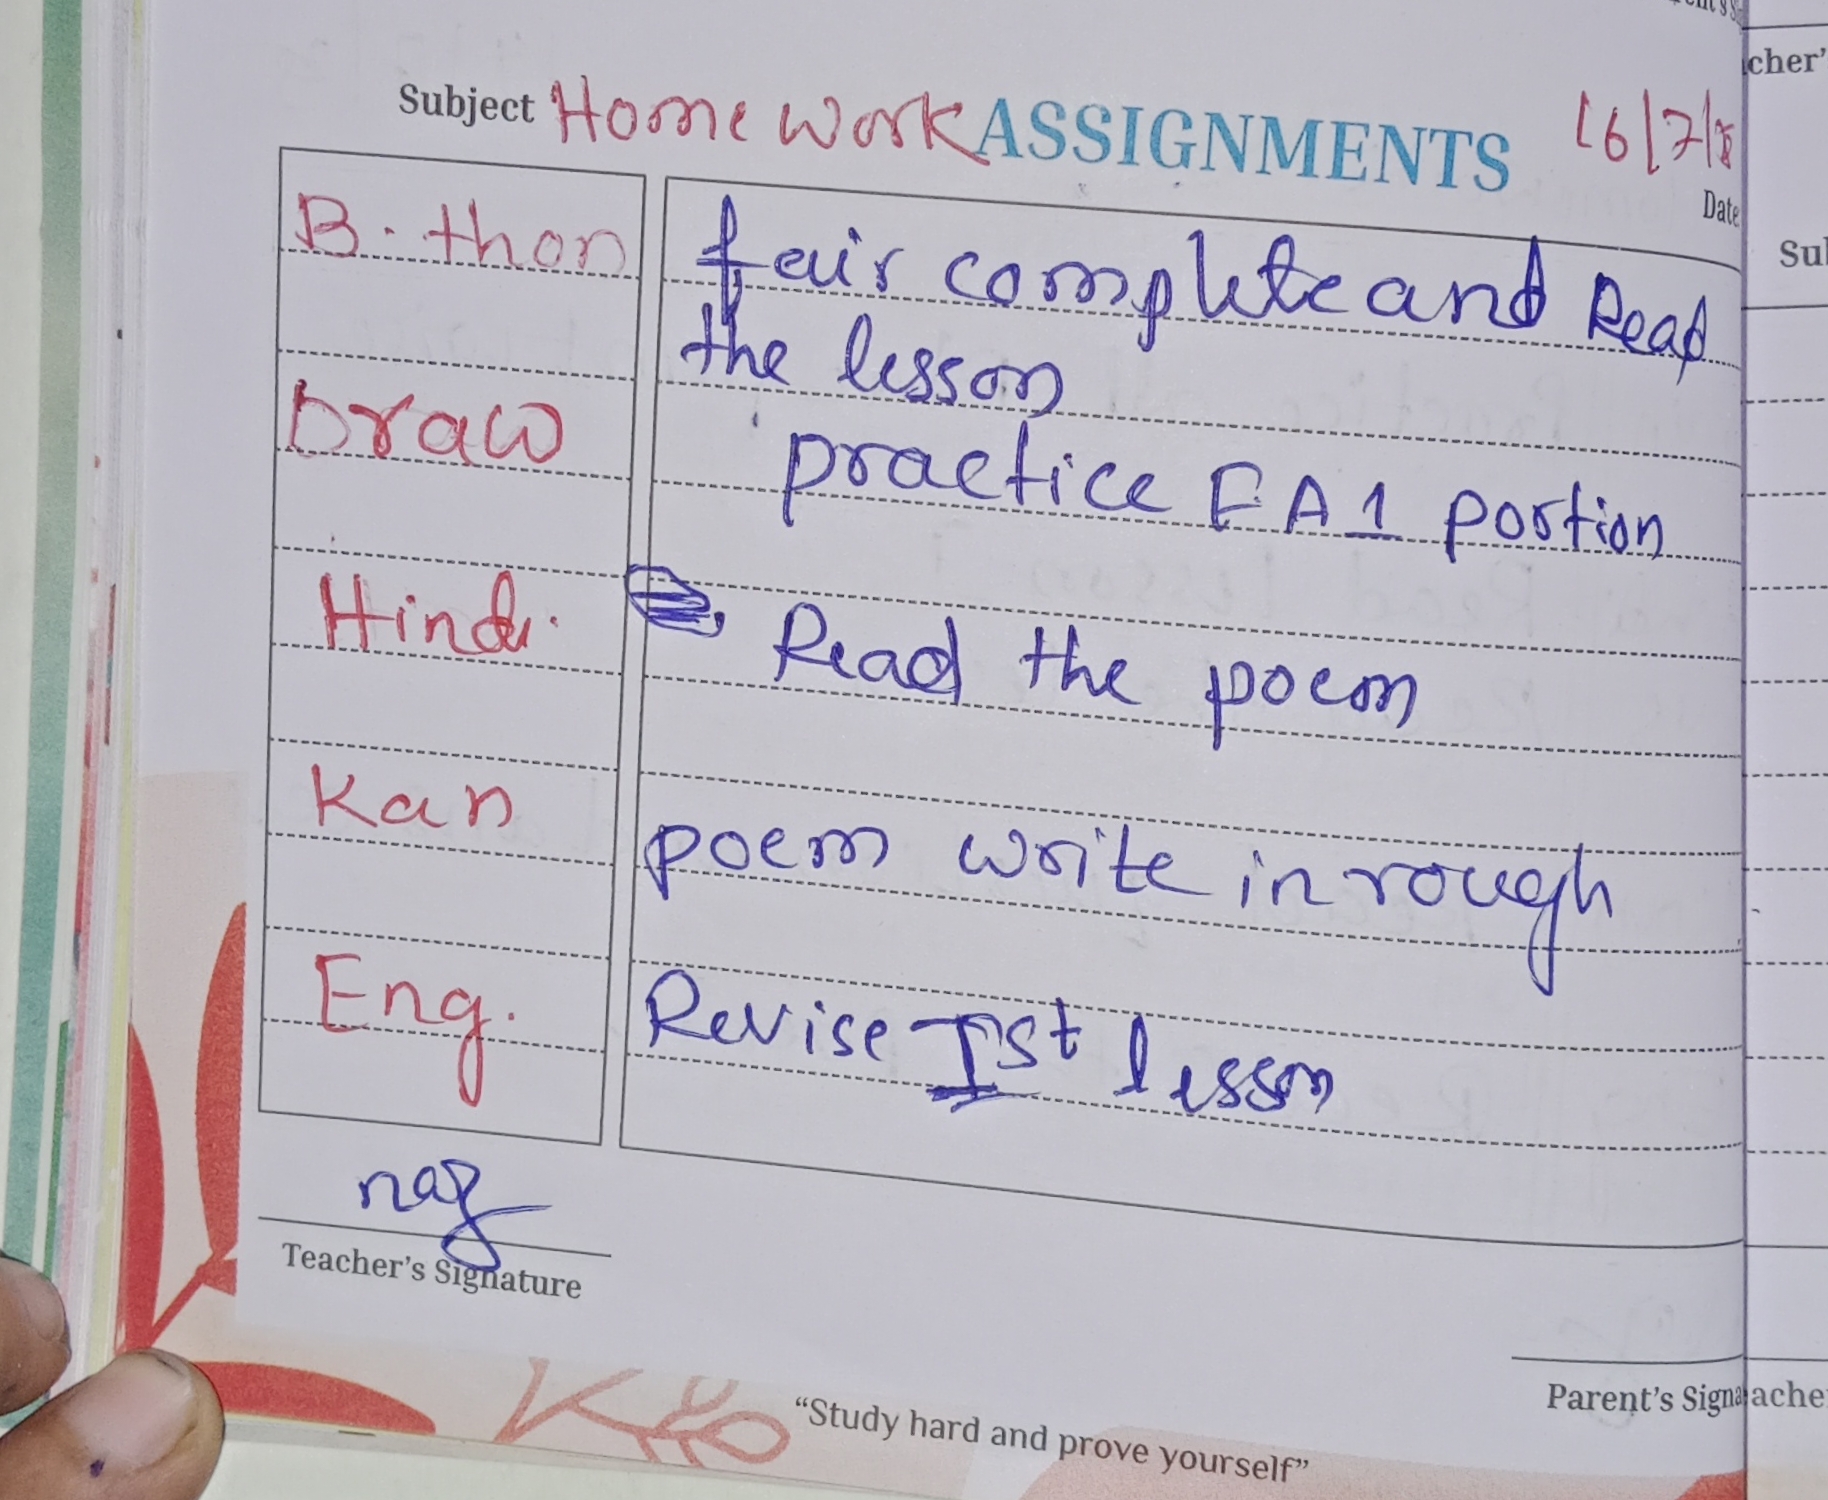 Subject Home Work ASSIGNMENTS 16/7/
Date
B. thon fair complete and Read
the lesson
Draw practice FA1 portion
Hindi. Read the poem
Kan poem write in rough
Eng. Revise Ist lesson
naz
Teacher's Signature
Parent's Signa
"Study hard and prove yourself"
cher'
Sul
ache